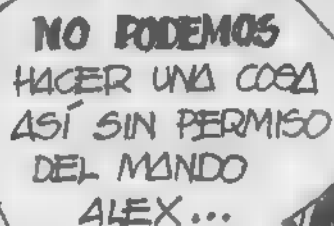 NO PODEMOS
HACER UNA COSA
ASÍ SIN PERMISO
DEL MANDO
ALEX...